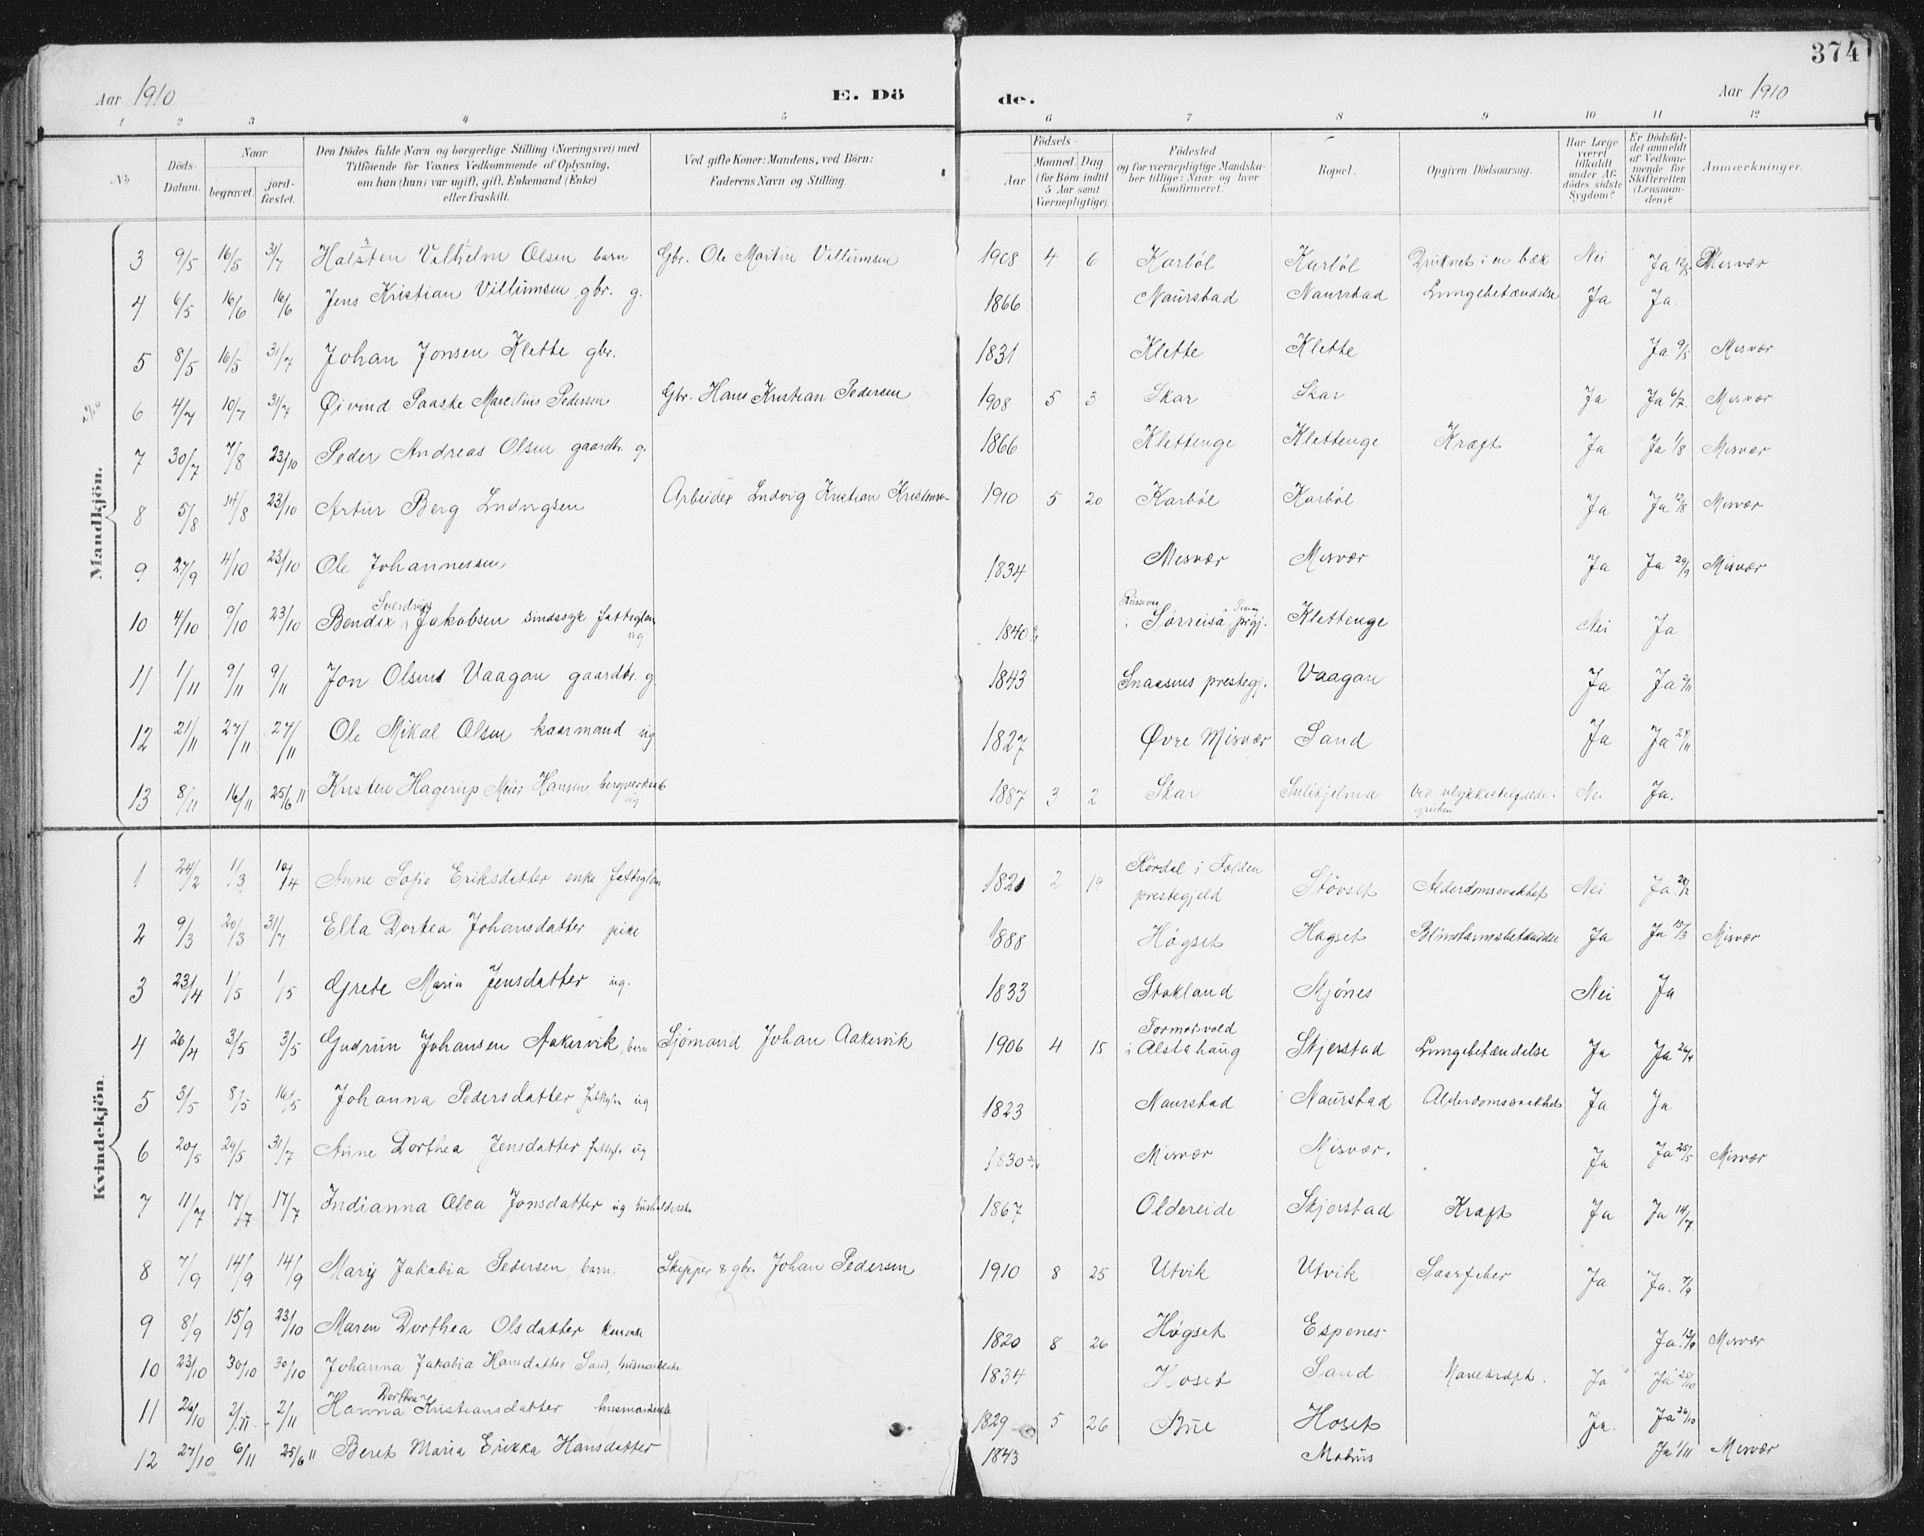 374
Aar 1910
E. Dö
de.
Aar 1910
1 2 3 4 5 6 7 8 9 10 11 12
No.
Döds-Datum.
Naar
begravet.
jordfæstet.
Den Dödes fulde Navn og borgerlige Stilling (Næringsvei) med Tilföiende for Voxnes Vedkommende af Oplysning, om han (hun) var ugift, gift, Enkemand (Enke) eller fraskilt.
Ved gifte Koner: Mandens, ved Börn: Faderens Navn og Stilling.
Födsels-
Aar
Maaned. Dag
(for Börn indtil 5 Aar samt Værnepligtige).
Födested og for værnepligtige Mandskaber tillige: Naar og hvor konfirmeret.
Bopæl.
Opgiven Dödsaarsag.
Har Læge været tilkaldt under Afdödes sidste Sygdom?
Er Dödsfaldet anmeldt af Vedkommende for Skifteretten (Lensmanden)?
Anmærkninger.
Mandkjön.
3 9/5 16/5 31/7 Halsten Vilhelm Olsen barn Gbr. Ole Martin Villumsen 1908 4 6 Karbøl Karbøl Druknet i en bæk Nei Ja 12/5 Misvær
4 6/5 16/6 16/6 Jens Kristian Villumsen gbr. g. 1866 Naurstad Naurstad Lungebetændelse Ja Ja.
5 8/5 16/5 31/7 Johan Jonsen Klette gbr. 1831 Klette Klette Ja 9/5 Misvær
6 4/7 10/7 31/7 Øivind Paaske Marelius Pedersen Gbr. Hans Kristian Pedersen 1908 5 3 Skar Skar Ja Ja 6/7 Misvær
7 30/7 7/8 23/10 Peder Andreas Olsen gaardbr. g. 1866 Klettenge Klettenge Kræft Ja Ja 1/8 Misvær
8 5/8 14/8 23/10 Artur Berg Ludvigsen Arbeider Ludvig Kristian Kristensen 1910 5 20 Karbøl Karbøl Ja Ja 12/8 Misvær
9 27/9 4/10 23/10 Ole Johannessen 1834 Misvær Misvær Ja Ja 29/9 Misvær
10 4/10 9/10 23/10 Bendix Sverdrup Jakobsen sindssyk fattiglem ug 1840 i Sørreisa prgj. Klettenge Nei Ja
11 1/11 9/11 9/11 Jon Olsens Vaagan gaardbr. g. 1843 Snaasens prestegj. Vaagan Ja Ja 2/11
12 21/11 27/11 27/11 Ole Mikal Olsen kaarmand ug 1827 Øvre Misvær Sand Ja Ja 24/11
13 8/11 16/11 25/6 11 Kristen Hagerup Meier Hansen, bergverksarb ug 1887 3 2 Skar Sulitjelma Ved ulykkestilfælde i gruben Nei Ja.
Kvindekjön.
1 24/2 1/3 10/4 Anne Sofie Eriksdatter enke fattiglem 1821 2 19 Rørdal i Folden prestegjeld Støvset Alderdomssvakhet Nei Ja 28/2
2 9/3 20/3 31/7 Ella Dortea Johansdatter pike 1888 Høgset Høgset Blindtarmsbetændelse Ja Ja 15/3 Misvær
3 23/4 1/5 1/5 Grete Maria Jensdatter ug. 1833 Stokland Mjønes Nei Ja
4 26/4 3/5 3/5 Gudrun Johansen Aakervik, barn Sjømand Johan Aakervik 1906 4 15 Tormorsvold i Alstahaug Skjerstad Lungebetændelse Ja Ja 26/4
5 3/5 8/5 16/5 Johanna Pedersdatter fattiglem ug. 1823 Naurstad Naurstad Alderdomssvakhet Ja Ja
6 20/5 24/5 31/7 Anne Dorthea Jensdatter fattiglem ug 1830 Misvær Misvær. Ja Ja 25/5 Misvær
7 11/7 17/7 17/7 Indianna Olea Jonsdatter ug husholderske 1867 Oldereide Skjerstad Kræft Ja Ja 14/7
8 7/9 14/9 14/9 Mary Jakobia Pedersen, barn. Skipper & gbr. Johan Pedersen 1910 8 25 Utvik Utvik Saarfeber Ja Ja. 7/9
9 8/9 15/9 23/10 Maren Dorthea Olsdatter 1820 8 26 Høgset Espenes Ja. 12/9 Misvær
10 23/10 30/10 30/10 Johanna Jakobia Hansdatter Sand, husmandsenke 1834 Hoset Sand Mavekræft. Ja Ja 25/10
11 26/10 2/11 2/11 Hanna Dorthea Kristiansdatter husmandsenke 1829 5 26 Bue Hoset Ja. Ja 26/10
12 27/10 6/11 25/6 11 Beret Maria Erikka Hansdatter 1843 Mohus Ja 1/11 Misvær